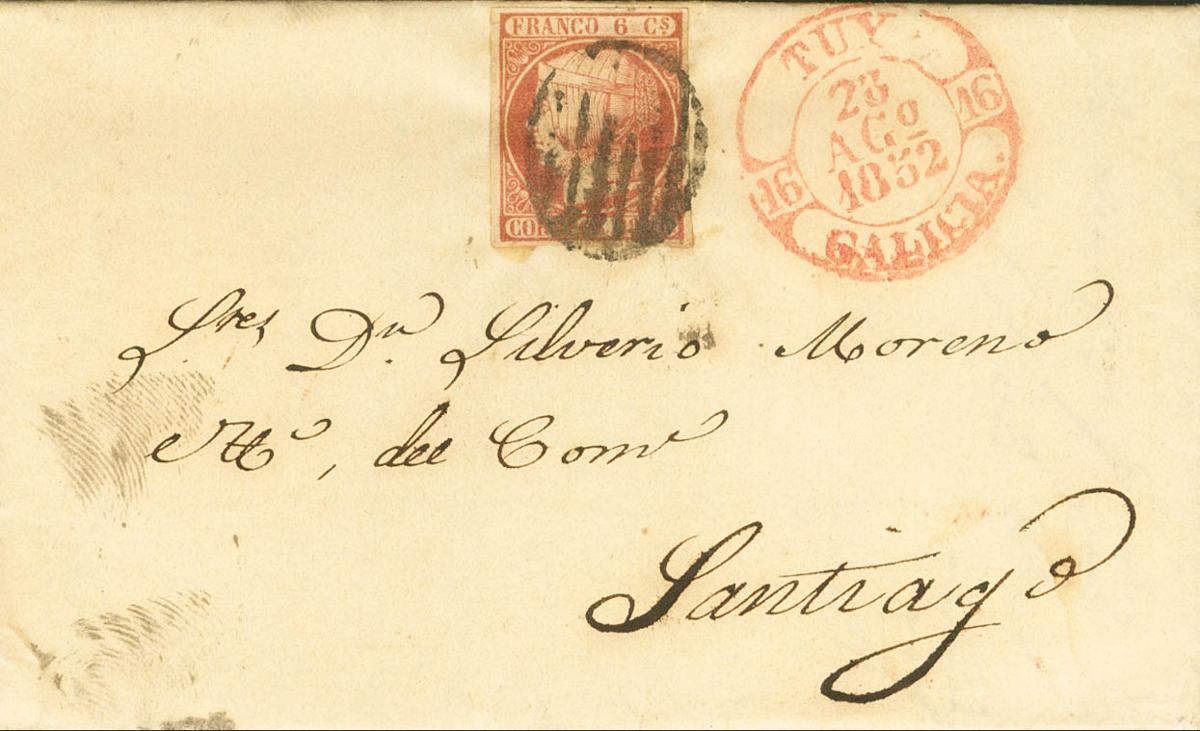 FRANCO 6 Cs
TUY
23
AGo
1852
16
16
GALICIA.
Sres Dn. Silverio Moreno
del Como
Santiago